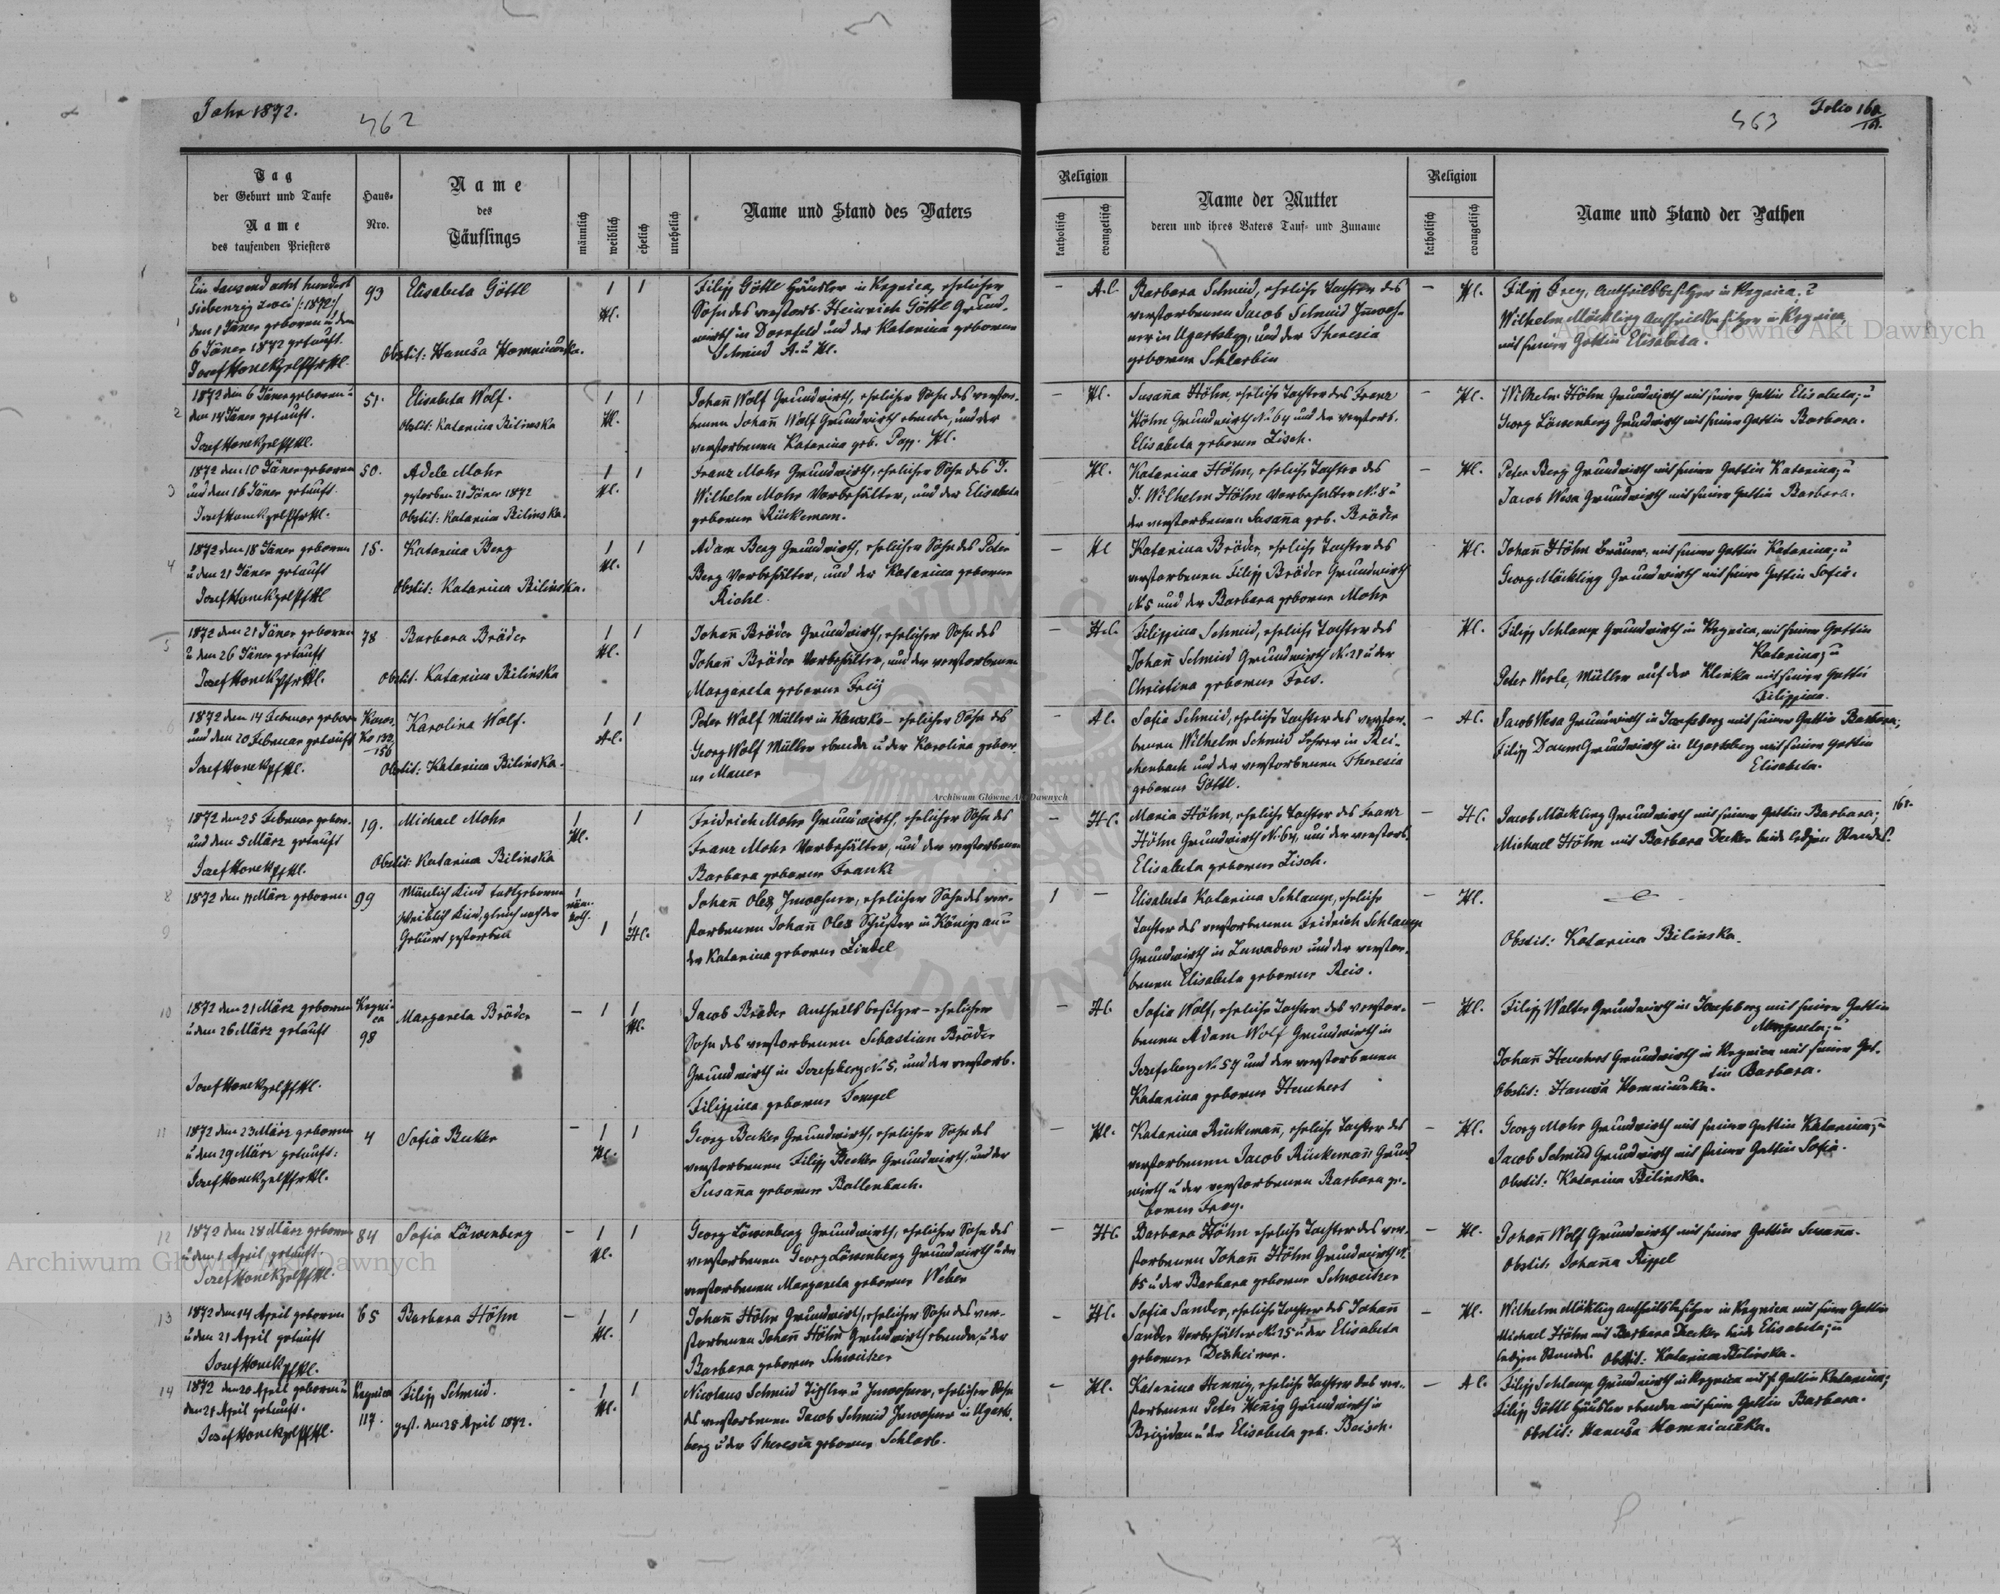 Jahr 1872.
462
463
Folio 160
161.
Tag
der Geburt und Taufe
Name
des taufenden Priesters
Haus-
Nro.
Name
des
Täuflings
männlich
weiblich
ehelich
unehelich
Name und Stand des Vaters
Religion
katholisch
evangelisch
Name der Mutter
deren und ihres Vaters Tauf- und Zuname
Religion
katholisch
evangelisch
Name und Stand der Pathen
1
Ein tausend acht hundert
siebenzig zwei /:1872:/
den 1 Jäner geboren u den
6 Jäner 1872 getauft.
93
Elisabeta Göttl
Obstit: Hanusa
1
Hl.
1
Filipp Göttl Häusler in Kegnica, ehelicher
Sohn des verstorb. Heinrich Göttl Grund-
wirth in Dornfeld und der Katarina geborene
Schmid A. u Hl.
–
A.C.
Barbara Schmid, eheliche Tochter des
verstorbenen Jacob Schmid Inwoh-
ner in Ugartsberg, und der Theresia
geborene Schlarbin
–
Hl.
Filipp Frey, Antheilsbesitzer in Kegnica; u
Wilhelm Möckling Antheilsbesitzer in Kegnica,
mit seiner Gattin Elisabeta.
2
1872 den 6 Jäner geboren u
den 14 Jäner getauft.
51.
Elisabeta Wolf.
Obstit: Katarina Bilinska
1
Hl.
1
Johann Wolf Grundwirth, ehelicher Sohn des verstor-
benen Johann Wolf Grundwirth ebenda, und der
verstorbenen Katarina geb. Popp. Hl.
–
Hl.
Susana Höhn, eheliche Tochter des Franz
Höhn Grundwirth N. 64 und der verstorb.
Elisabeta geborene Zisch.
–
Hl.
Wilhelm Höhn Grundwirth mit seiner Gattin Elisabeta; u
Georg Löwenberg Grundwirth mit seiner Gattin Barbara.
3
1872 den 10 Jäner geboren
und den 16 Jäner getauft.
50.
Adele Mohr
gestorben 21 Jäner 1872
Obstit: Katarina Bilinska.
1
Hl.
1
Franz Mohr Grundwirth, ehelicher Sohn des J.
Wilhelm Mohr Vorbehälter, und der Elisabeta
geborene Rückemann.
Hl.
Katarina Höhn, eheliche Tochter des
J. Wilhelm Höhn Vorbehalter N. 8 u
der verstorbenen Susana geb. Bröder
–
Hl.
Peter Berg Grundwirth mit seiner Gattin Katarina; u
Jacob Wesa Grundwirth mit seiner Gattin Barbara.
4
1872 den 18 Jäner geboren
u den 21 Jäner getauft
15.
Katarina Berg
Obstit: Katarina Bilinska.
1
Hl.
1
Adam Berg Grundwirth, ehelicher Sohn des Peter
Berg Vorbehälter, und der Katarina geborene
Riehl.
–
Hl
Katarina Bröder, eheliche Tochter des
verstorbenen Filipp Bröder Grundwirth
N. 5 und der Barbara geborene Mohr
Hl.
Johann Höhn Bräuer, mit seiner Gattin Katarina; u
Georg Möckling Grundwirth mit seiner Gattin Sofia.
5
1872 den 21 Jäner geboren
u den 26 Jäner getauft
78
Barbara Bröder
Obstit. Katarina Bilinska
1
Hl.
1
Johann Bröder Grundwirth, ehelicher Sohn des
Johann Bröder Vorbehälter, und der verstorbenen
Margareta geborene Freij
–
H.C.
Filippina Schmid, eheliche Tochter des
Johann Schmid Grundwirth N. 28 u der
Christina geborene Fres.
Hl.
Filipp Schlamp Grundwirth in Kegnica, mit seiner Gattin
Katarina; u
Peter Werle, Müller auf der Klinka mit seiner Gattin
Filippina.
6
1872 den 14 Februar geboren
und den 20 Februar getauft
132
156
Karolina Wolf.
Obstit: Katarina Bilinska.
1
A.C.
1
Peter Wolf Müller in – ehelicher Sohn des
Georg Wolf Müller ebenda u der Karolina gebor-
ne Mauer
–
A.C.
Sofia Schmid, eheliche Tochter des verstor-
benen Wilhelm Schmid Lehrer in Rei-
chenbach und der verstorbenen Theresia
geborene Göttl.
–
A.C.
Jacob Wesa Grundwirth in Josefsberg mit seiner Gattin Barbara;
Filipp Daum Grundwirth in Ugartsberg mit seiner Gattin
Elisabeta.
161.
7
1872 den 25 Februar gebor.
und den 5 März getauft
19.
Michael Mohr
Obstit: Katarina Bilinska
1
Hl.
1
Fridrich Mohr Grundwirth, ehelicher Sohn des
Franz Mohr Vorbehälter, und der verstorbenen
Barbara geborene Franke
–
H.C.
Maria Höhn, eheliche Tochter des Franz
Höhn Grundwirth N. 64, und der verstorb.
Elisabeta geborene Zisch.
–
H.C.
Jacob Möckling Grundwirth mit seiner Gattin Barbara;
Michael Höhn mit Barbara Decker beide ledigen Standes.
8
9
1872 den 11 März geboren
99
Mänlich Kind todtgeboren
Weiblich Kind, gleich nach der
Geburt gestorben
1
1
1
Hl.
Johann Oles, Inwohner, ehelicher Sohn des ver-
storbenen Johann Oles Schuster in Königsau u
der Katarina geborene Zindel
1
–
Elisabeta Katarina Schlamp, eheliche
Tochter des verstorbenen Fridrich Schlamp
Grundwirth in und der verstor-
benen Elisabeta geborene Reis.
–
Hl.
Obstit: Katarina Bilinska.
10
1872 den 21 März geboren
u den 26 März getauft
Kegni-
ca
98
Margareta Bröder
–
1
1
Hl.
Jacob Bröder Antheilsbesitzer – ehelicher
Sohn des verstorbenen Sebastian Bröder
Grundwirth in Josefsberg N. 5, und der verstorb.
Filippina geborene Tempel
–
A.C.
Sofia Wolf, eheliche Tochter des verstor-
benen Adam Wolf Grundwirth in
Josefsberg N. 57 und der verstorbenen
Katarina geborene Henchert
–
Hl.
Filipp Walter Grundwirth in Josefsberg mit seiner Gattin
Margareta; u
Johann Henchert Grundwirth in Kegnica mit seiner Gat-
tin Barbara.
Obstit: Hanusa
11
1872 den 23 März geboren
u den 29 März getauft:
4
Sofia Becker
–
1
Hl.
1
Georg Becker Grundwirth, ehelicher Sohn des
verstorbenen Filipp Becker Grundwirth, und der
Susana geborene Bollenbach.
–
Hl.
Katarina Rückemann, eheliche Tochter des
verstorbenen Jacob Rückemann Grund-
wirth u der verstorbenen Barbara ge-
borene Frey.
–
Hl.
Georg Mohr Grundwirth mit seiner Gattin Katarina; u
Jacob Schmid Grundwirth mit seiner Gattin Sofia.
Obstit: Katarina Bilinska.
12
1872 den 28 März geboren
u den 1 April getauft.
84
Sofia Löwenberg
–
1
Hl.
1
Georg Löwenberg Grundwirth, ehelicher Sohn des
verstorbenen Georg Löwenberg Grundwirth u der
verstorbenen Margareta geborene Weber
–
H.C.
Barbara Höhn eheliche Tochter des ver-
storbenen Johann Höhn Grundwirth N.
65 u der Barbara geborene Schweitzer
–
Hl.
Johann Wolf Grundwirth mit seiner Gattin Susana.
Obstit: Johanna Rippel
13
1872 den 14 April geboren
u den 21 April getauft
65
Barbara Höhn
–
1
Hl.
1
Johann Höhn Grundwirth, ehelicher Sohn des ver-
storbenen Johann Höhn Grundwirth ebenda, u der
Barbara geborene Schweitzer
–
H.C.
Sofia Sander, eheliche Tochter des Johann
Sander Vorbehälter N. 25 u der Elisabeta
geborene Dexheimer.
–
Hl.
Wilhelm Mökling Antheilsbesitzer in Kegnica mit seiner Gattin
Michael Höhn mit Barbara Decker beide Elisabeta; u
ledigen Standes. Obstit: Katarina Bilinska.
14
1872 den 20 April geboren u
den 21 April getauft.
Kegnica
117.
Filipp Schmid.
gest. den 28 April 1872.
–
1
Hl.
1
Nicolaus Schmid Tischler u Inwohner, ehelicher Sohn
des verstorbenen Jacob Schmid Inwohner in Ugarts-
berg u der Theresia geborene Schlarb.
–
Hl.
Katarina Hennig, eheliche Tochter des ver-
storbenen Peter Hennig Grundwirth in
Brigidau u der Elisabeta geb. Baisch.
–
A.C.
Filipp Schlamp Grundwirth in Kegnica mit s. Gattin Katarina;
Filipp Göttl Häusler ebenda mit seiner Gattin Barbara.
Obstit: Hanusa
Archiwum Główne Akt Dawnych
Archiwum Główne Akt Dawnych
Archiwum Główne Akt Dawnych